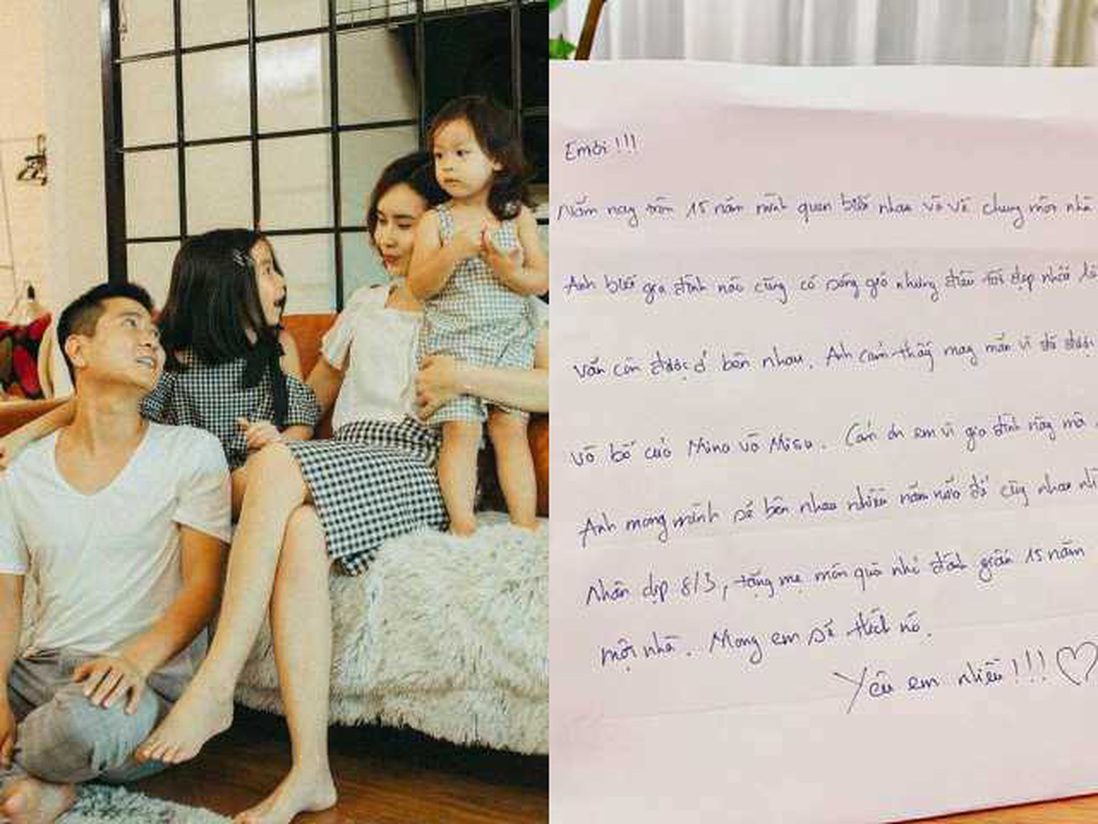 Em ơi !!!
Năm nay tròn 15 năm mình quen biết nhau và về chung một nhà
Anh biết gia đình nào cũng có sóng gió nhưng điều tốt đẹp nhất là
vẫn còn được ở bên nhau. Anh cảm thấy may mắn vì đã được
và bố của Mino và Misu. Cảm ơn em vì gia đình này mà
Anh mong mình sẽ bên nhau nhiều năm nữa để cùng nhau
Nhân dịp 8/3, tặng mẹ món quà nhỏ đánh giấu 15 năm
một nhà. Mong em sẽ thích nó.
Yêu em nhiều !!! ♡